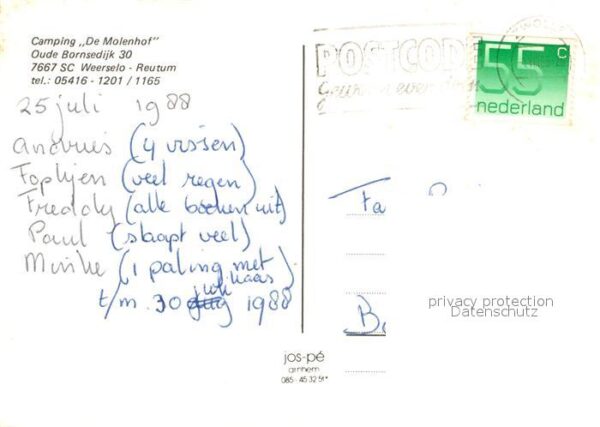 Camping „De Molenhof"
Oude Bornsedijk 30
7667 SC Weerselo - Reutum
tel.: 05416 - 1201 / 1165
25 juli 1988
Andries (4 vissen)
Fopkjen (veel regen)
Freddy (alle boeken uit)
Paul (slaapt veel)
Minke (1 paling met
kaas)
t/m. 30 juli 1988
POSTCODE
55 c
nederland
Fa
B
privacy protection
Datenschutz
jos-pé
arnhem
085-45 32 51*